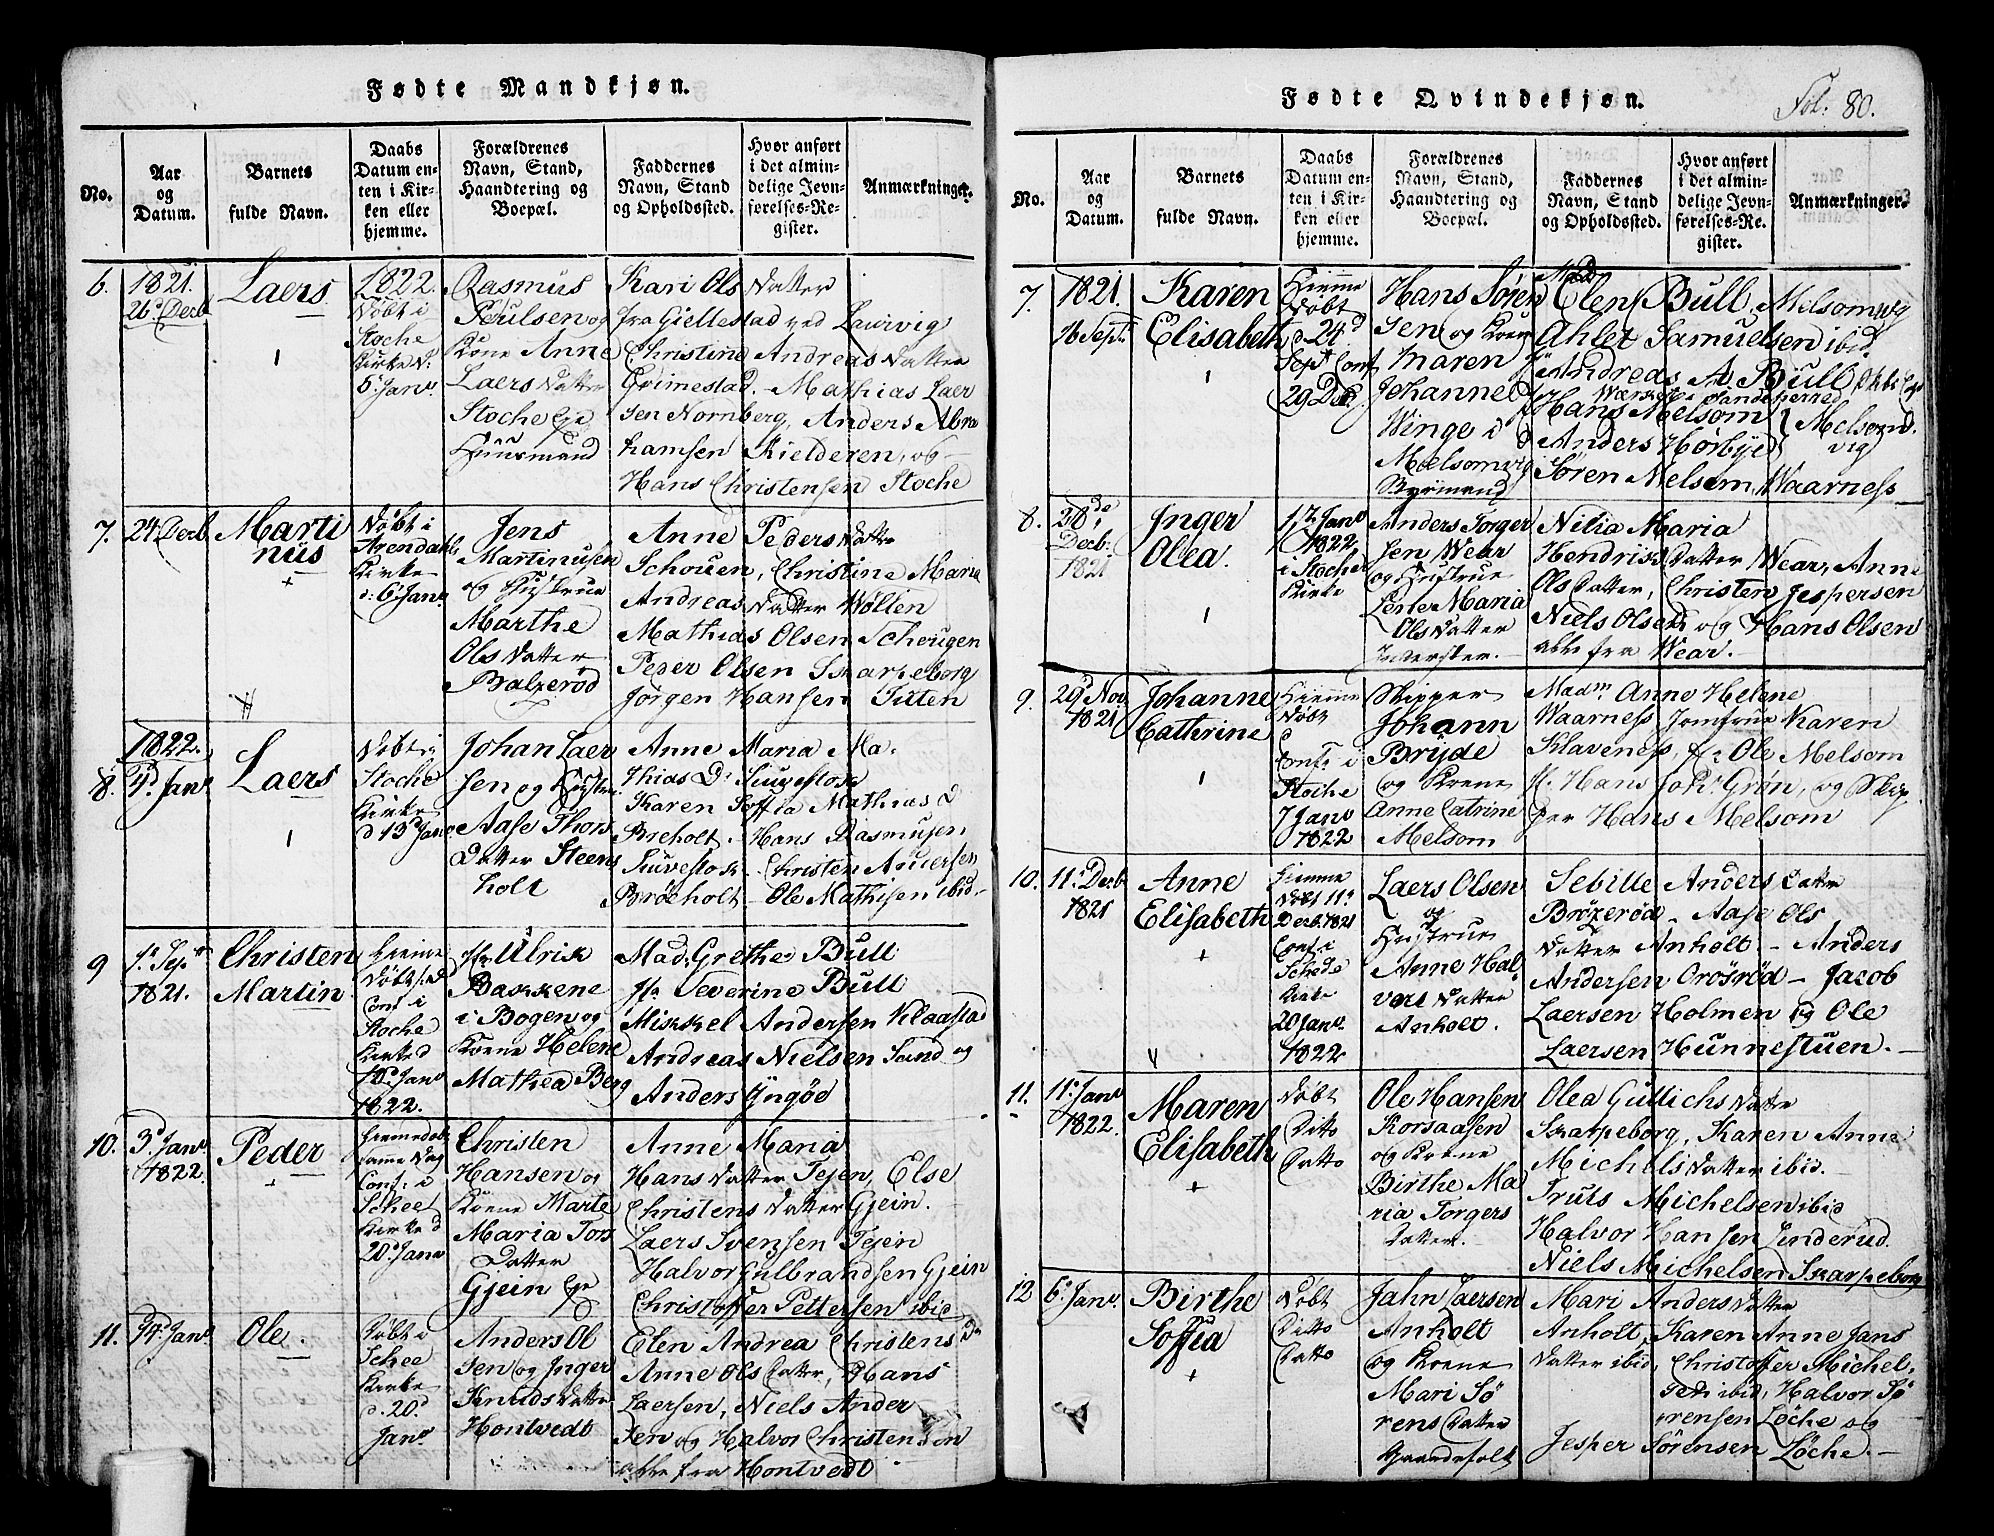 Fødte Mandkjøn.
No.
Aar
og
Datum.
Barnets
fulde Navn.
Daabs
Datum en-
ten i Kir-
ken eller
hjemme.
Forældrenes
Navn, Stand,
Haandtering og
Boepæl.
Faddernes
Navn, Stand
og Opholdssted.
Hvor anført
i det almin-
delige Jevn-
førelses-Re-
gister.
Anmærkninger.
6.
1821.
26d Decb
Laers
1822.
Døbt i
Stoche
Kirke d:
6 Janv.
Rasmus
Poulsen og
Kone Anne
Laers Datter
Stoche Eje
Huusmand
Kari Ols Datter
fra Giellestad ved Laurvig
Christine Andreas Datter
Grimestad. Mathias Laer
sen Nornberg, Anders Abra
hamsen Kielderen, og
Hans Christensen Stoche
7.
24 Decb.
Marti
nus
Døbt i
Arendahls
Kirke
d: 6 Janv.
Jens
Martinusen
og Hustrue
Marthe
Ols Datter
Balzerød
Anne Peders Datter
Schouen, Christine Maria
Andreas Datter Wøllen
Mathias Olsen Schougen
Peder Olsen Skarpeborg
Jørgen Hansen Titten
8.
1822.
Janv.
Laers
Døbt i
Stoche
Kirke
d 13 Janv
Johan Laer
sen og Hustru
Aase Thors
Datter Steens
holt
Anne Maria Ma.
thias D:
Karen Soffia Mathias D
Breholt. Hans Rasmusen
Christen Andersen
Brøeholt Ole Mathisen ibid.
9
1. Sept
1821.
Christen
Martin
hieme
Døbt
Conf i
Stoche
Kirke d
Janv
1822.
Ulrik
Bakkene
i Bogen og
Kone Helene
Mathea Berg
Mad. Grethe Bull
Jfr Severine Bull
Mikkel Andersen Klaastad
Andreas Nielsen Sand og
Anders Yngøe
10.
3d Janv
1822.
Peder
hiemedøbt
same Dag
Conf: i
Schee
Kirke d
20. Janv
Christen
Hansen og
Kone Marte
Maria Tors
Datter
Gjein Eje
Anne Maria
Hans Datter Tejen, Else
Christens Datter Gjein.
Laers Svensen Tejein
Halvor Gulbrandsen Gjein
Christoffer Pettersen ibid
11.
Janv
Ole.
Døbt i
Schee
Kirke
d. 20.
Janv
Anders Ol
sen og Inger
Knuds Datter
Hontvedt
Elen Andrea Christens D
Anne Ols Datter, Hans
Laersen, Niels Ander
sen og Halvor Christensen
alle fra Hontvedt
Fødte Qvindekjøn.
Fol: 80.
No.
Aar
og
Datum.
Barnets
fulde Navn.
Daabs
Datum en-
ten i Kir-
ken eller
hjemme.
Forældrenes
Navn, Stand,
Haandtering og
Boepæl.
Faddernes
Navn, Stand
og Opholdssted.
Hvor anført
i det almin-
delige Jevn-
førelses-Re-
gister.
Anmærkninger.
7.
1821.
16 Sept.
Karen
Elisabeth
Hieme
Døbt
d 24d
Sept Conf
29 Dec
Hans Søren
sen og Kone
Maren
Johanne
Winge i
Melsomvig
Mad
Elen Bull. Melsomvig
Ahlet Samuelsen ibid.
Andreas A Bull
Hans Melsom
Anders Hørbye
Melsom
vig
Søren Melsom Waarness
8.
28de
Decb:
1821
Inger
Olea.
17 Janv
1822
i Stoche
Kirke
Anders Torger
sen Wear
og Hustrue
Lene Maria
Ols Datter
Nilia Maria
Hendriks Datter Wear, Anne
Ols Datter, Christen Jespersen
Niels Olsen og Hans Olsen
alle fra Wear.
9.
29d Nov
1821
Johanne
Cathrine
Hieme
Døbt
d
Conf: i
Stoche
7 Janv
1822
Skipper
Johann
Bryde
og Kone
Anne Catrine
Melsom
Madm Anne Helene
Waarness Jomfrue Karen
Klavenes, Hr Ole Melsom
Hr. Hans Joh: Grøn, og Skip
per Hans Melsom
10.
11. Decb
1821
Anne
Elisabeth
Hiemme
Døbt 11.
Decb. 1821
Conf i
Schee
Kirke
20 Janv.
1822
Laers Olsen
og
Hustrue
Anne Hal
vors Datter
Anholt.
Sebille Anders Datter
Brøzerød Aase Ols
Datter Anholt Anders
Andersen Orosrød Jacob
Laersen Holmen og Ole
Laersen Hunnestuen.
11.
11. Janv
1822.
Maren
Elisabeth
Døbt
Ditto
Datto
Ole Hansen
Korsaasen
og Kone
Birthe Ma
ria Torgers
Datter.
Olea Gullichs Datter
Skarpeborg, Karen Anne
Michels Datter ibid.
Truls Michelsen ibid
Halvor Hansen Linderud.
Niels Michelsen Skarpeborg
12
6. Janv.
Birthe
Soffia
Døbt
Ditto
Datto
Jahn Laersen
Anholt
og Kone
Mari Sø
rens Datter
Mari Anders Datter
Anholt, Karen Anne Jans
Datter ibid, Christoffer Michel.
sen ibid, Halvor Sø
rensen Løche og
Jesper Sørensen Løche.